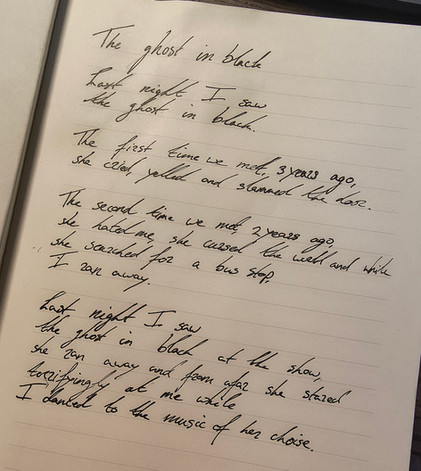 The ghost in black
Last night I saw
the ghost in black.
The first time we met, 3 years ago,
she cried, yelled and slammed the door.
The second time we met, 2 years ago,
she hated me, she cursed the well and while
she searched for a bus stop,
I ran away.
Last night I saw
the ghost in black at the show,
she ran away and from afar she stared
terrifyingly at me while
I danced to the music of her choise.